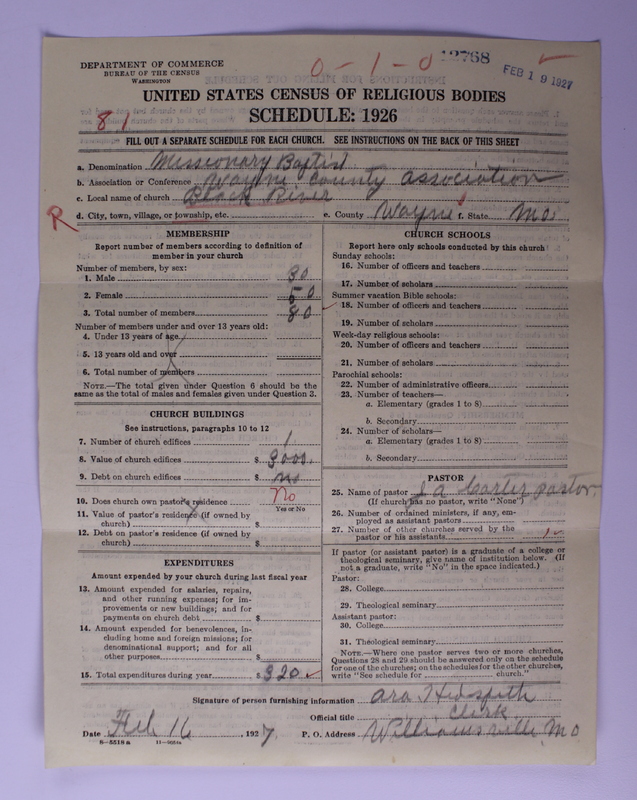 DEPARTMENT OF COMMERCE
BUREAU OF THE CENSUS
WASHINGTON
0-1-0
12768
FEB 19 1927
UNITED STATES CENSUS OF RELIGIOUS BODIES
SCHEDULE: 1926
81
FILL OUT A SEPARATE SCHEDULE FOR EACH CHURCH. SEE INSTRUCTIONS ON THE BACK OF THIS SHEET
a. Denomination Missionary Baptist
b. Association or Conference Wayne County association
c. Local name of church Black River
R
d. City, town, village, or township, etc. e. County Wayne f. State Mo
MEMBERSHIP
Report number of members according to definition of
member in your church
Number of members, by sex:
1. Male 30
2. Female 50
3. Total number of members 80
Number of members under and over 13 years old:
4. Under 13 years of age
5. 13 years old and over
6. Total number of members
NOTE.—The total given under Question 6 should be the
same as the total of males and females given under Question 3.
CHURCH BUILDINGS
See instructions, paragraphs 10 to 12
7. Number of church edifices 1
8. Value of church edifices $ 3000.
9. Debt on church edifices $ no
10. Does church own pastor's residence No
Yes or No
11. Value of pastor's residence (if owned by
church) $
12. Debt on pastor's residence (if owned by
church) $
EXPENDITURES
Amount expended by your church during last fiscal year
13. Amount expended for salaries, repairs,
and other running expenses; for im-
provements or new buildings; and for
payments on church debt $
14. Amount expended for benevolences, in-
cluding home and foreign missions; for
denominational support; and for all
other purposes $
15. Total expenditures during year $ 320
CHURCH SCHOOLS
Report here only schools conducted by this church
Sunday schools:
16. Number of officers and teachers
17. Number of scholars
Summer vacation Bible schools:
18. Number of officers and teachers
19. Number of scholars
Week-day religious schools:
20. Number of officers and teachers
21. Number of scholars
Parochial schools:
22. Number of administrative officers
23. Number of teachers—
a. Elementary (grades 1 to 8)
b. Secondary
24. Number of scholars—
a. Elementary (grades 1 to 8)
b. Secondary
PASTOR
25. Name of pastor J A Carter pastor.
(If church has no pastor, write "None")
26. Number of ordained ministers, if any, em-
ployed as assistant pastors
27. Number of other churches served by the
pastor or his assistants 1
If pastor (or assistant pastor) is a graduate of a college or
theological seminary, give name of institution below. (If
not a graduate, write "No" in the space indicated.)
Pastor:
28. College
29. Theological seminary
Assistant pastor:
30. College
31. Theological seminary
NOTE.—Where one pastor serves two or more churches,
Questions 28 and 29 should be answered only on the schedule
for one of the churches; on the schedules for the other churches,
write "See schedule for church."
Signature of person furnishing information Ara Hudspeth
Official title Clerk
Date Feb 16, 1927. P. O. Address Williamsville Mo
8-5518a